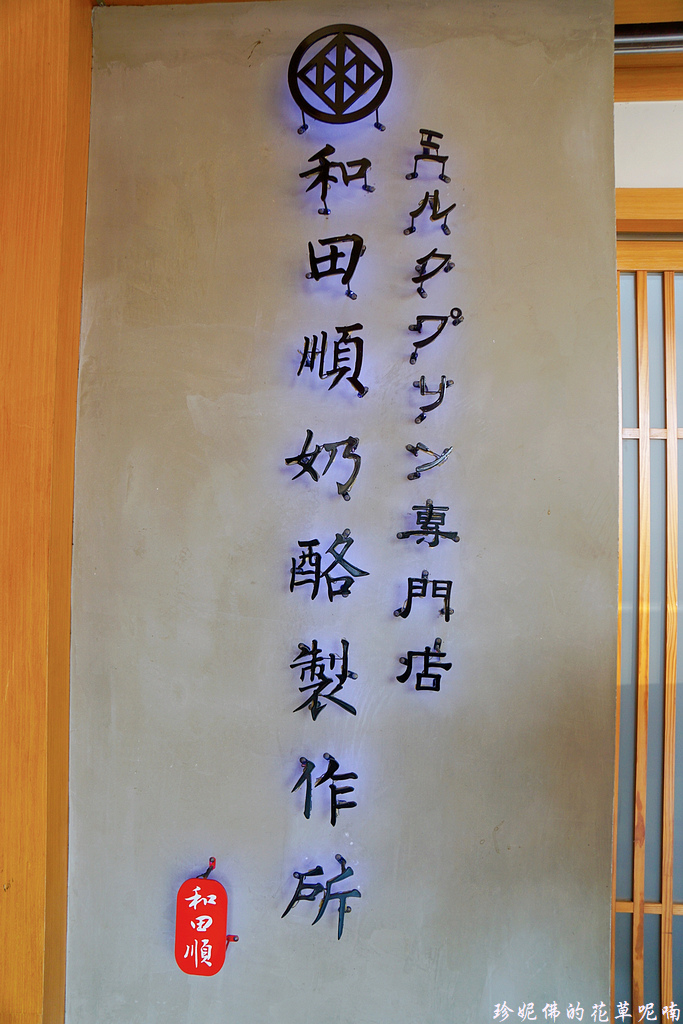 ミルクプリン専門店
和田順奶酪製作所
和田順
珍妮佛的花草呢喃